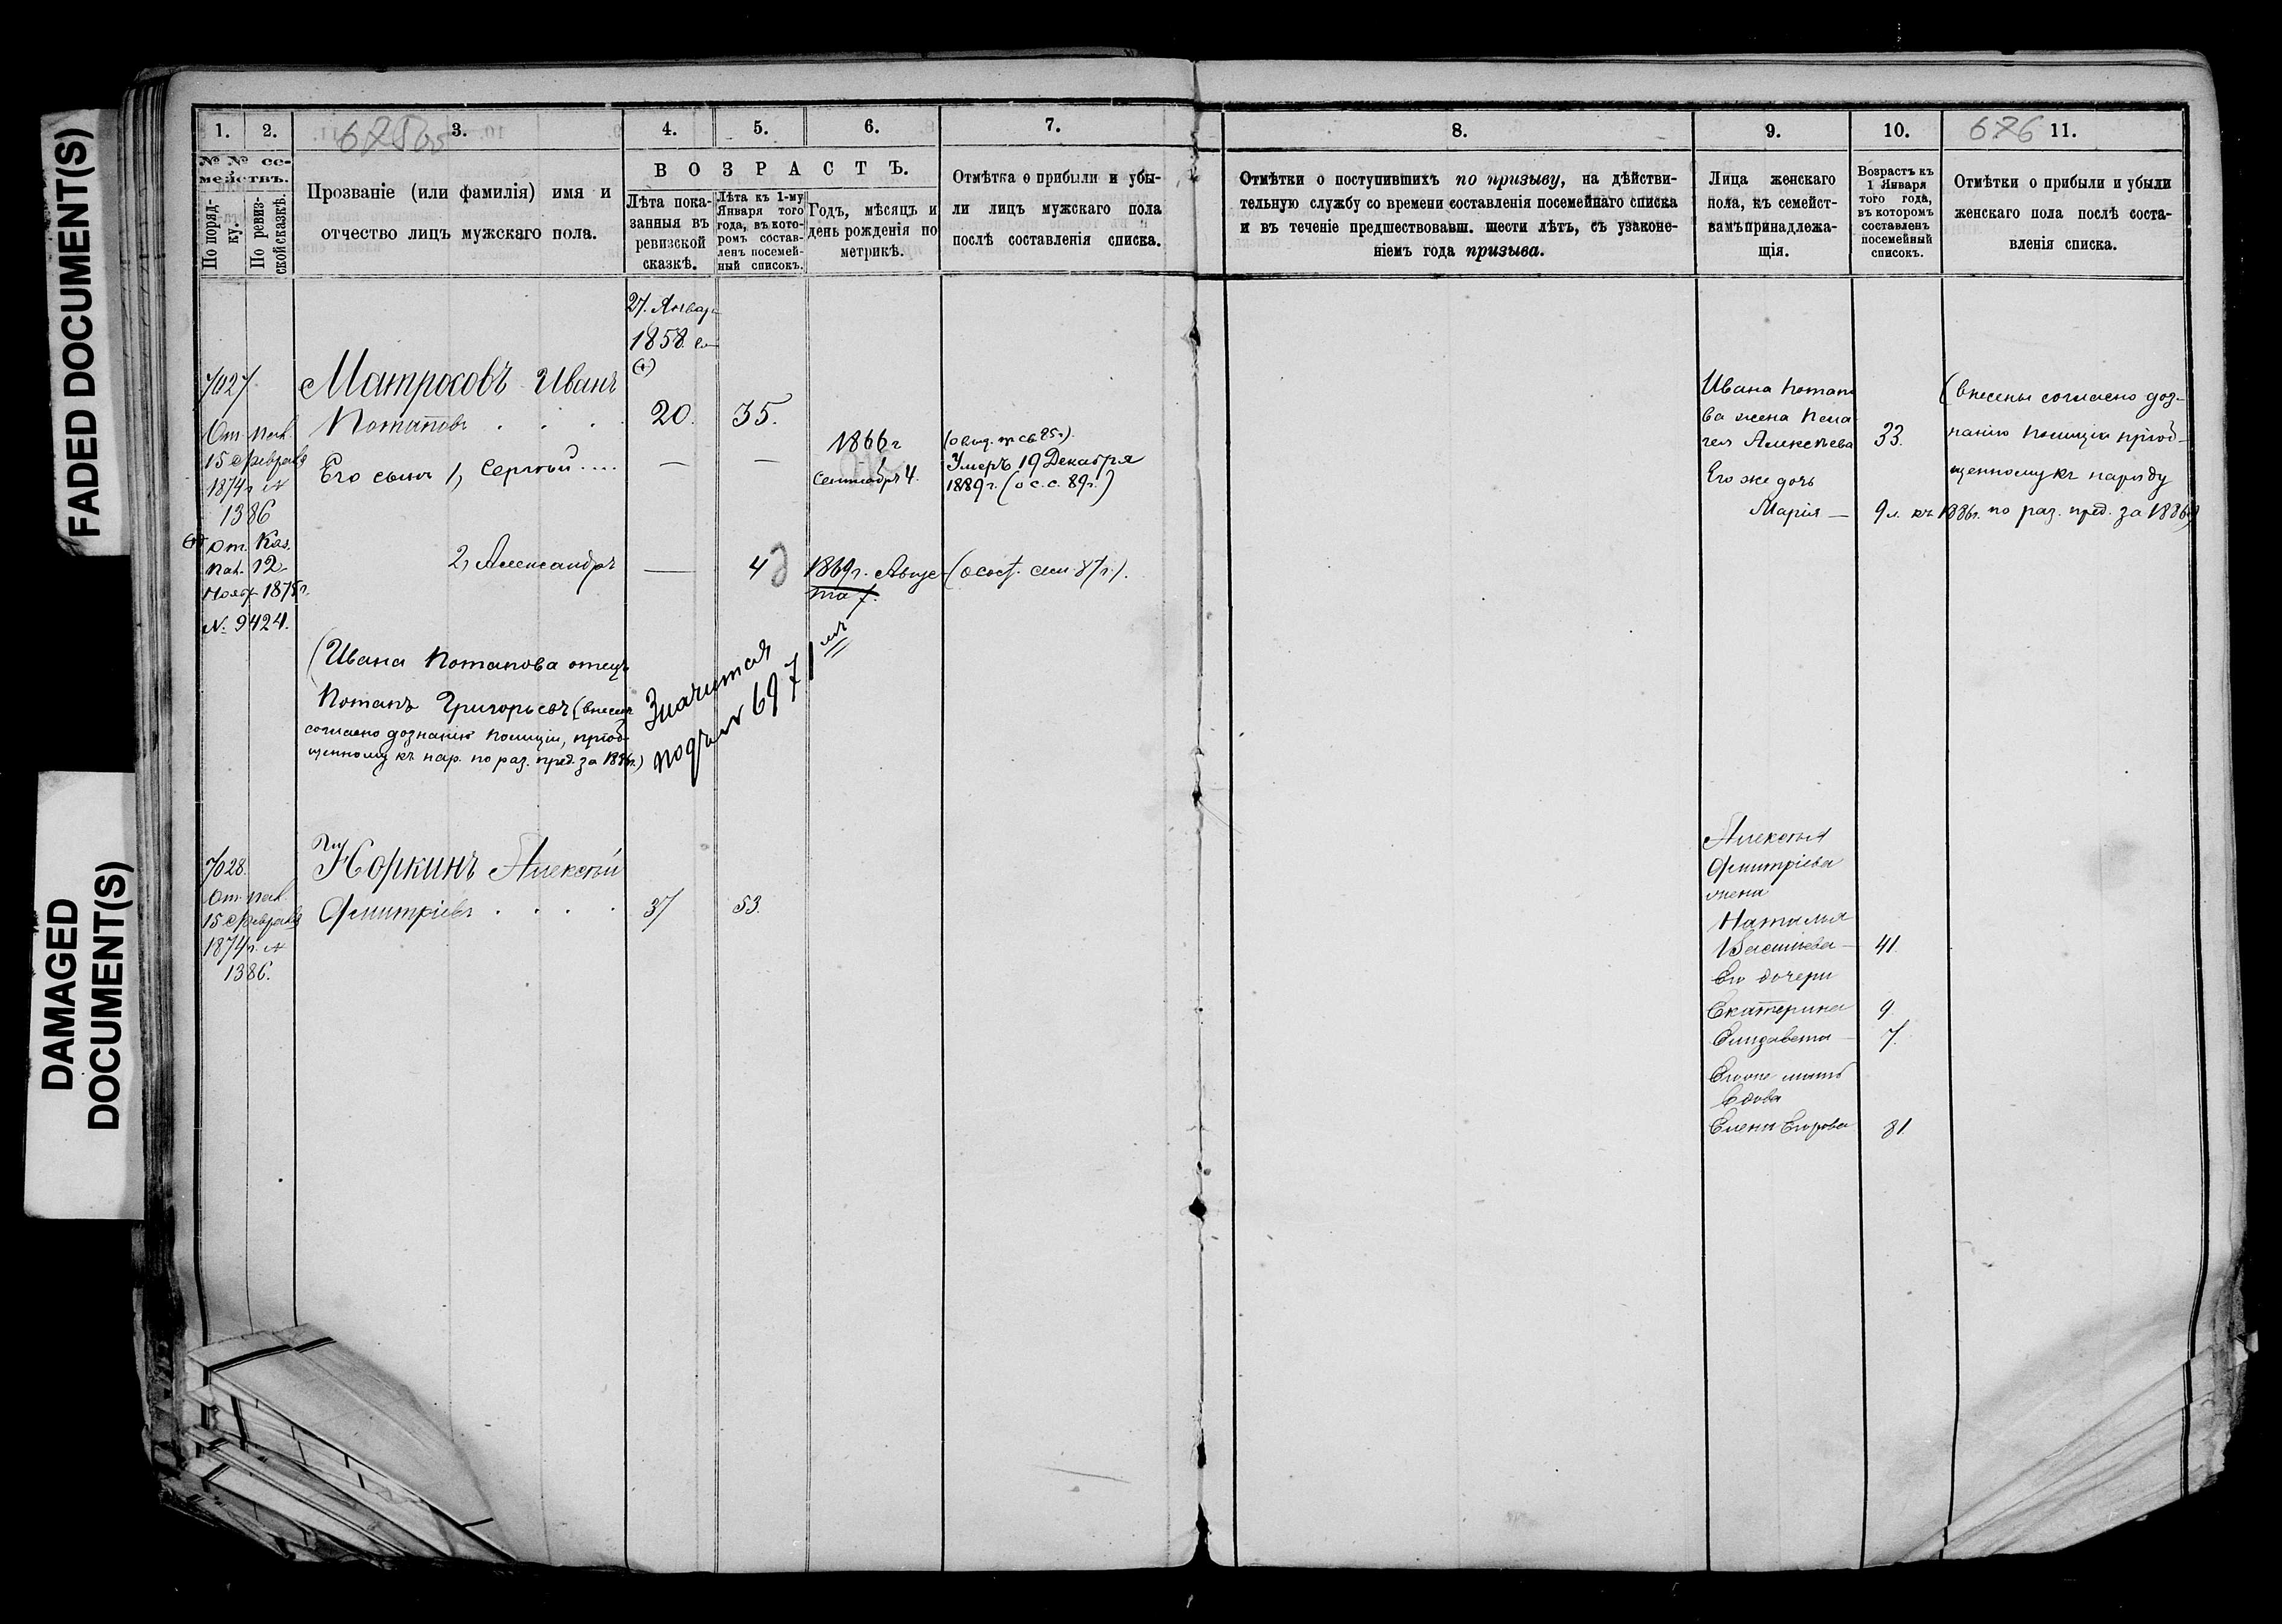 FADED DOCUMENT(S)
DAMAGED
DOCUMENT(S)
1. 2. 3. 4. 5. 6. 7.
№ № се-
мействъ.
По поряд-
ку.
По ревиз-
ской сказкѣ.
Прозваніе (или фамилія) имя и
отчество лицъ мужскаго пола.
ВОЗРАСТЪ.
Лѣта пока-
занныя въ
ревизской
сказкѣ.
Лѣта къ 1-му
Января того
года, въ кото-
ромъ состав-
ленъ посемей-
ный списокъ.
Годъ, мѣсяцъ и
день рожденія по
метрикѣ.
Отмѣтка о прибыли и убы-
ли лицъ мужскаго пола
послѣ составленія списка.
27. Январ
1858.
(+)
7027
От. пал.
15 февраля
1874 г. №
1386
От. Каз.
пал. 12
Ноябр. 1875 г.
№. 9424.
Матросовъ Иванъ
Потаповъ . . . 20. 35.
Его сынъ 1, Сергѣй .... — —
1866 г
Сентября 4.
Умеръ 19 Декабря
1889 г. (о с. с. 89 г.)
2, Александръ — 4
1869 г. Авгус-
та 7.
(Ивана Потапова отецъ
Потапъ Григорьевъ (внесенъ
согласно дознанію полиціи, пріоб-
щенному къ нар. по раз. пред. за 1886 г.)
Значится
подъ № 6971 мъ
7028.
От. пал.
15 февраля
1874 г. №
1386.
Норкинъ Алексѣй
Дмитріевъ . . . . 37 53.
8. 9. 10. 676 11.
Отмѣтки о поступившихъ по призыву, на дѣйстви-
тельную службу со времени составленія посемейнаго списка
и въ теченіе предшествовавш. шести лѣтъ, съ узаконе-
ніемъ года призыва.
Лица женскаго
пола, къ семейст-
вамъ принадлежа-
щія.
Возрастъ къ
1 Января
того года,
въ которомъ
составленъ
посемейный
списокъ.
Отмѣтки о прибыли и убыли
женскаго пола послѣ соста-
вленія списка.
Ивана Потапо
ва жена Пела
гея Алексѣева 33.
Его же дочь
Марія — 9 л. къ 1886 г. по раз. пред. за 1886 г)
(внесены согласно доз-
нанію полиціи пріоб-
щенному къ наряду
Алексѣя
Дмитріева
жена
Наталья
Васильева — 41.
Его дочери
Екатерина 9.
Елизавета — 7.
Его же мать
вдова
Елена Егорова 81.